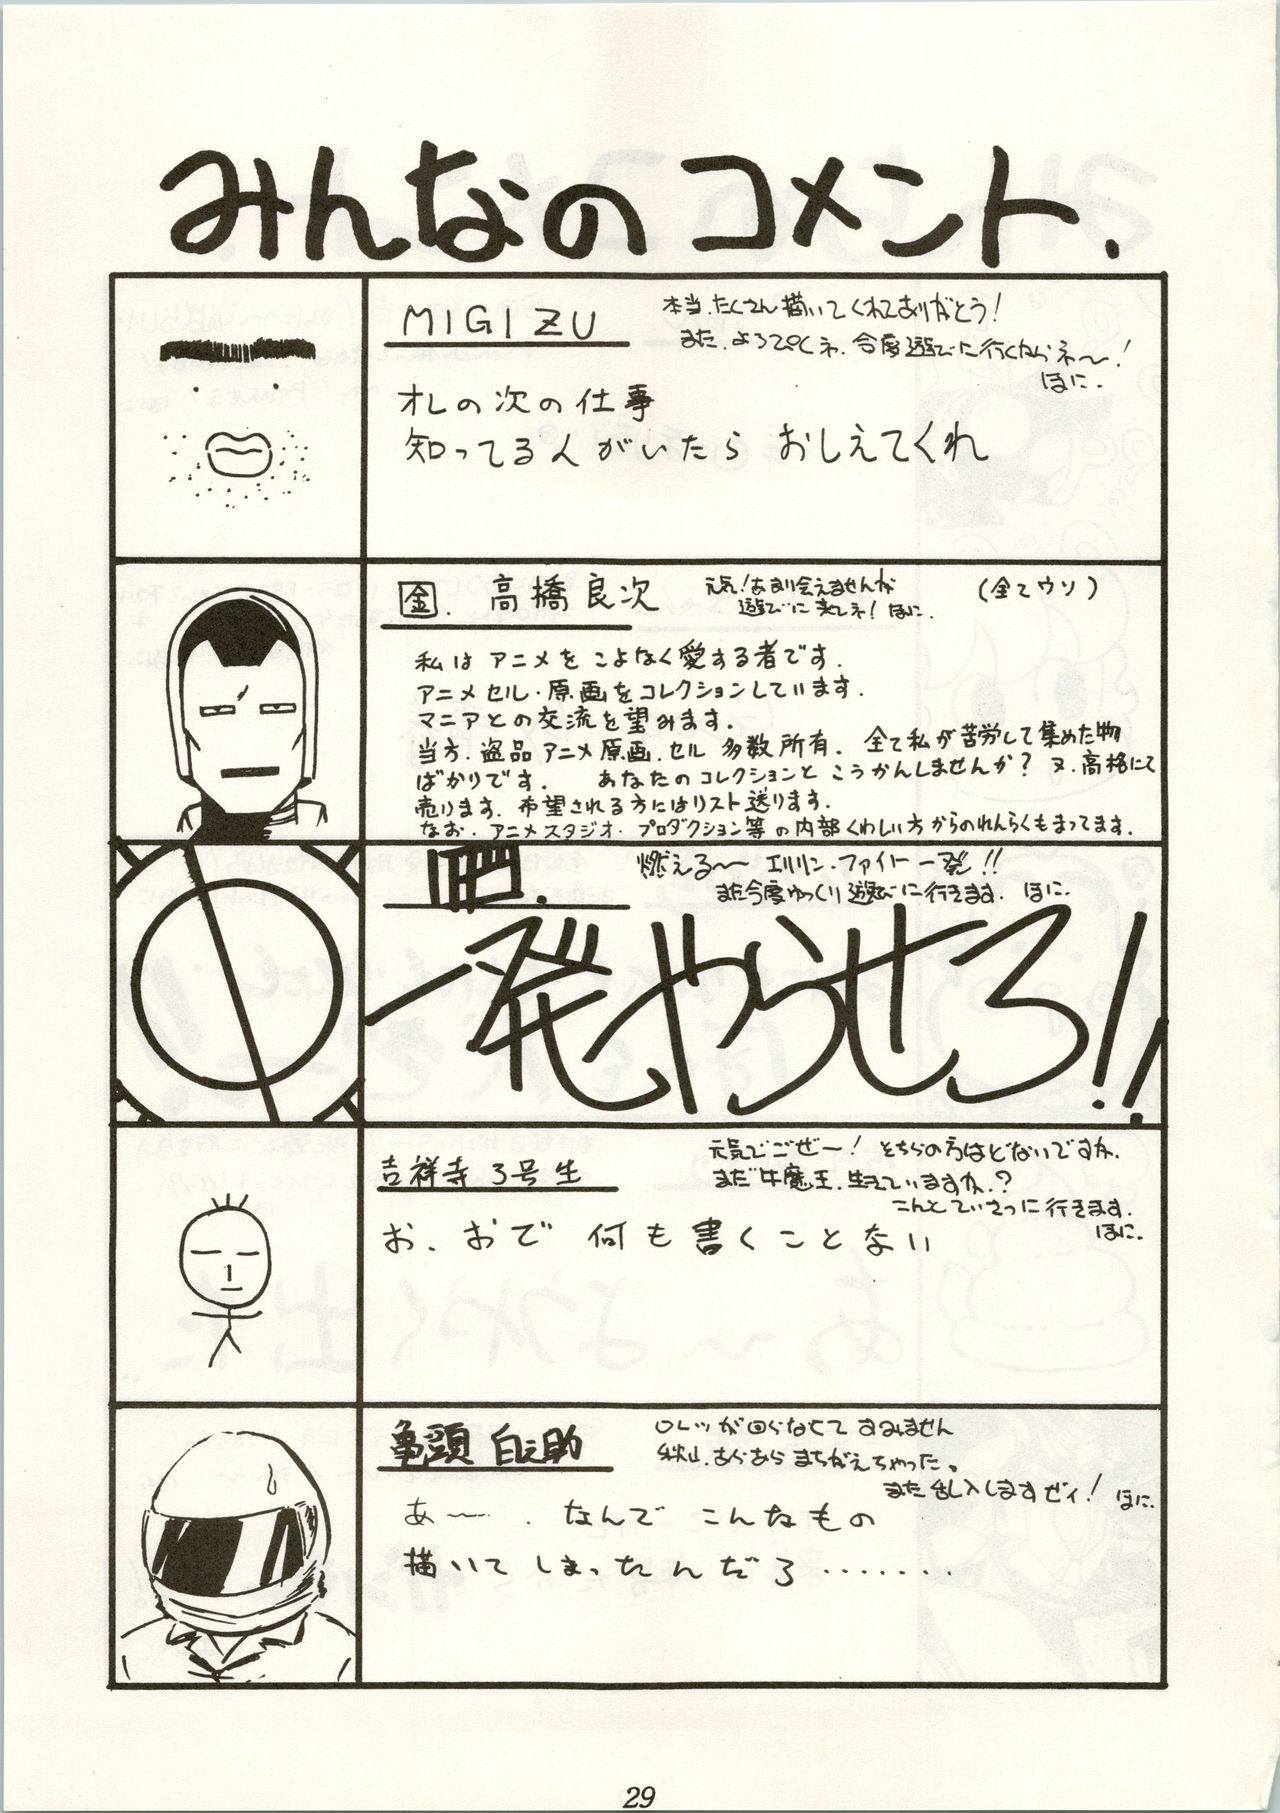 みんなのコメント.
MIGIZU
本当.たくさん描いてくれてありがとう!
また.よろぴくネ.今度遊びに行くからネ〜!
ほに.
オレの次の仕事
知ってる人がいたら おしえてくれ
金. 高橋良次
元気!あまり会えませんが
遊びに来てネ! ほに.
(全てウソ)
私は アニメを こよなく愛する者です.
アニメセル・原画をコレクションしています.
マニアとの交流を望みます.
当方.盗品アニメ原画.セル 多数所有. 全て私が苦労して集めた物
ばかりです. あなたのコレクションと こうかんしませんか? 又.高格にて
売ります.希望される方にはリスト送ります.
なお.アニメスタジオ.プロダクション等の内部くわしい方からのれんらくもまってます.
燃える〜 エリリン.ファイト一発!!
また今度ゆっくり遊びに行きます. ほに.
一発やらせろ!!
吉祥寺3号生
元気でごぜー! そちらの方はどないですか.
まだ牛魔王.生きていますか.?
こんと ていさつに行きます.
ほに.
お.おで 何も書くことない
亀頭 白之助
ロレツが回らなくて すみません
秋山.あらあら まちがえちゃった。
また乱入しますぜィ! ほに.
あ〜. なんで こんなもの
描いてしまったんだろ.......
29